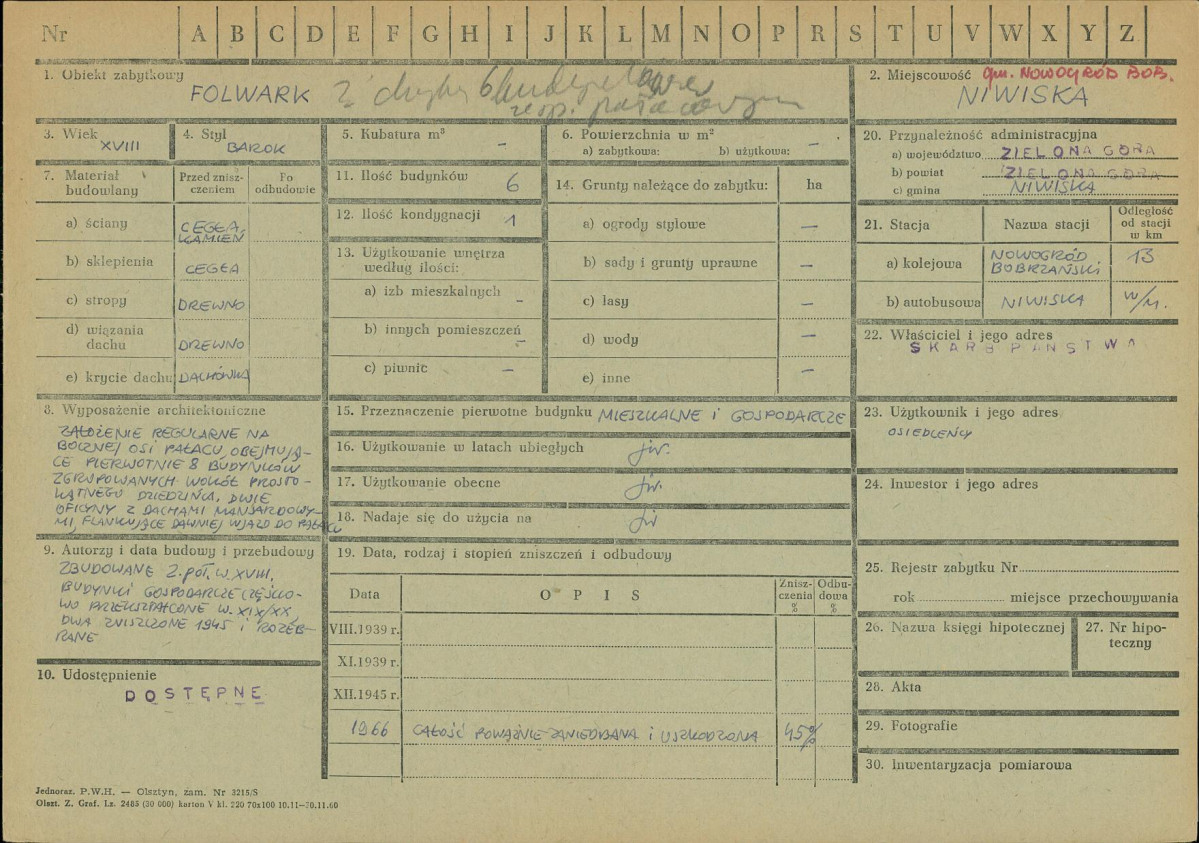 Nr A B C D E F G H I J K L M N O P R S T U V W X Y Z
1. Obiekt zabytkowy
FOLWARK
zesp. pałacowym
2. Miejscowość gm. NOWOGRÓD BOB.
NIWISKA
3. Wiek
XVIII
4. Styl
BAROK
5. Kubatura m³
–
6. Powierzchnia w m²
a) zabytkowa: b) użytkowa: –
7. Materiał budowlany
Przed zniszczeniem
Po odbudowie
a) ściany CEGŁA, KAMIEŃ
b) sklepienia CEGŁA
c) stropy DREWNO
d) wiązania dachu DREWNO
e) krycie dachu DACHÓWKA
11. Ilość budynków 6
12. Ilość kondygnacji 1
13. Użytkowanie wnętrza
według ilości:
a) izb mieszkalnych –
b) innych pomieszczeń –
c) piwnic –
14. Grunty należące do zabytku: ha
a) ogrody stylowe –
b) sady i grunty uprawne –
c) lasy –
d) wody –
e) inne –
20. Przynależność administracyjna
a) województwo ZIELONA GÓRA
b) powiat ZIELONA GÓRA
c) gmina NIWISKA
21. Stacja Nazwa stacji Odległość od stacji w km
a) kolejowa NOWOGRÓD BOBRZAŃSKI 13
b) autobusowa NIWISKA w/m.
22. Właściciel i jego adres
SKARB PAŃSTWA
8. Wyposażenie architektoniczne
ZAŁOŻENIE REGULARNE NA
BOCZNEJ OSI PAŁACU, OBEJMUJĄ-
CE PIERWOTNIE 8 BUDYNKÓW
ZGRUPOWANYCH WOKÓŁ PROSTO-
KĄTNEGO DZIEDZIŃCA, DWIE
OFICYNY Z DACHAMI MANSARDOWY-
MI, FLANKUJĄCE DAWNIEJ WJAZD DO PAŁACU
15. Przeznaczenie pierwotne budynku MIESZKALNE I GOSPODARCZE
16. Użytkowanie w latach ubiegłych jw.
17. Użytkowanie obecne jw.
18. Nadaje się do użycia na jw
23. Użytkownik i jego adres
OSIEDLEŃCY
24. Inwestor i jego adres
9. Autorzy i data budowy i przebudowy
ZBUDOWANE 2. POŁ. W. XVIII,
BUDYNKI GOSPODARCZE CZĘŚCIO-
WO PRZEKSZTAŁCONE W. XIX/XX,
DWA ZNISZCZONE 1945 I ROZEB-
RANE
10. Udostępnienie
DOSTĘPNE
19. Data, rodzaj i stopień zniszczeń i odbudowy
Data OPIS Zniszczenia % Odbudowa %
VIII.1939 r.
XI.1939 r.
XII.1945 r.
1966 CAŁOŚĆ POWAŻNIE ZANIEDBANA I USZKODZONA 45%
25. Rejestr zabytku Nr
rok miejsce przechowywania
26. Nazwa księgi hipotecznej
27. Nr hipoteczny
28. Akta
29. Fotografie
30. Inwentaryzacja pomiarowa
Jednoraz. P.W.H. — Olsztyn, zam. Nr 3215/S
Olszt. Z. Graf. Lz. 2485 (30 000) karton V kl. 220 70x100 10.11—30.11.60